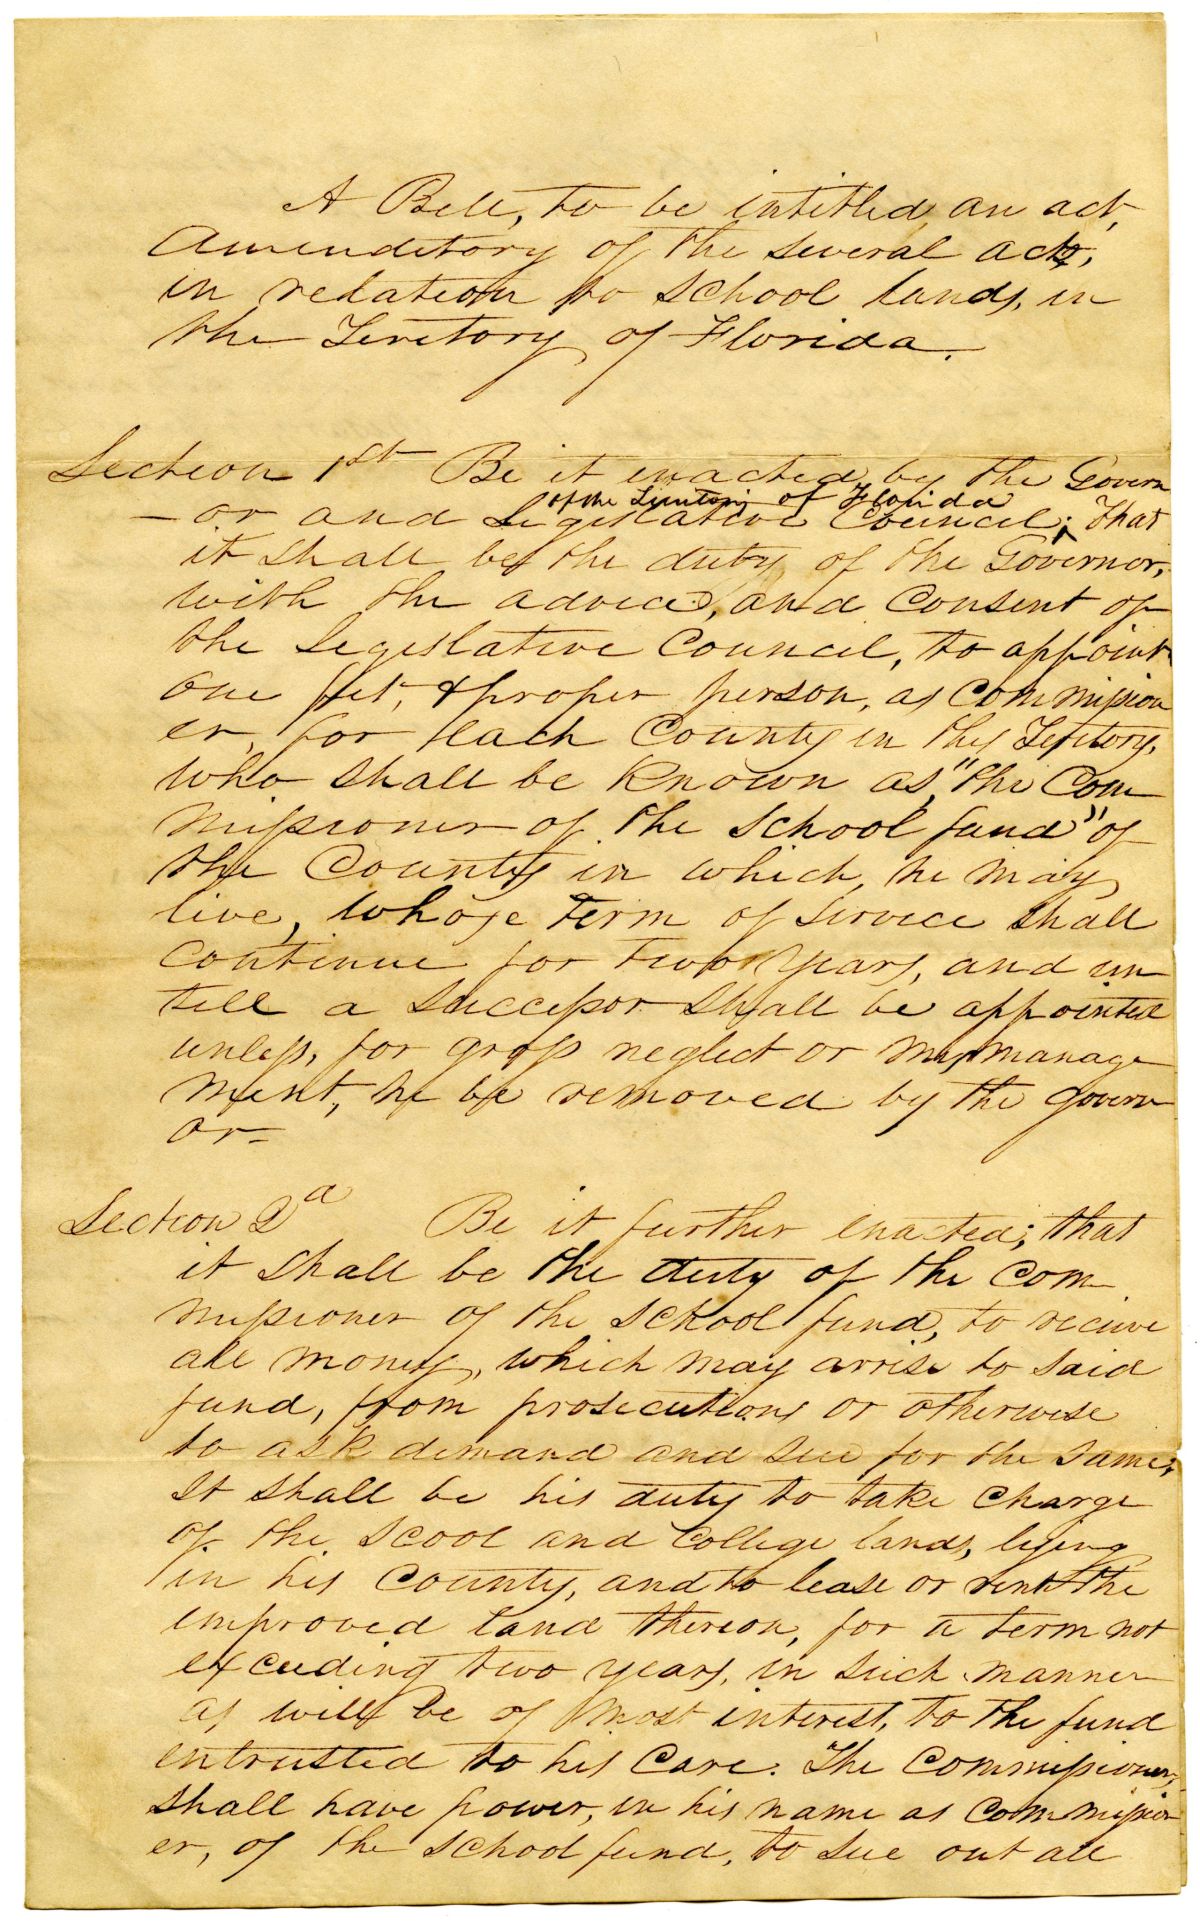 A Bill, to be intitled, an act,
Amenditory of the several acts,
in relation to School lands, in
the Teritory of Florida.
Section 1st Be it enacted by the Govern
of the Teritory of Florida
-or and Legislative Council; that
it shall be the duty of the Governor,
with the advice, and Consent of
the Legislative Council, to appoint
one fit, & proper person, as Commission
er, for each County in this Teritory,
who shall be known as, "the Com
missioner of the School fund" of
the County in which, he may
live, whose term of service shall
Continue for two years, and un
till a successor shall be appointed
unless, for gross neglect or mismanage
ment, he be removed by the govern
or-
Section 2d Be it further enacted; that
it shall be the duty of the Com
missioner of the School fund, to recieve
all money, which may arrise to said
fund, from prosecutions or otherwise
to ask demand and sue for the same;
It shall be his duty to take charge
of the Scool and College lands, lying
in his County, and to lease or rent the
improved land thereon, for a term not
exceeding two years, in such manner
as will be of most interest, to the fund
entrusted to his Care. The Commissioner,
shall have power, in his name as Commission
er, of the School fund, to sue out all